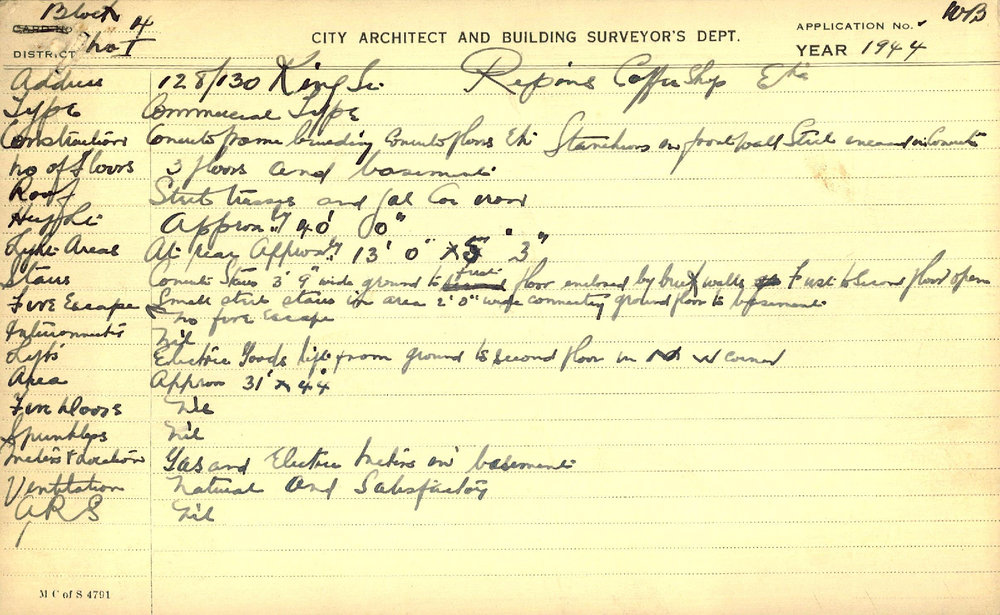 Block 4
CARD NO
DISTRICT No I
CITY ARCHITECT AND BUILDING SURVEYOR'S DEPT.
APPLICATION No. WB
YEAR 1944
Address 128/130 King St. Repins Coffee Shop Etc
Type Commercial Type
Construction Concrete frame building Concrete floors Etc Stanchions in front wall Steel encased in Concrete
No of Floors 3 floors and basement
Roof Steel trusses and Gal Cor iron
Height Approx 40' 0"
Light Areas At rear Approx 13' 0" x 5' 3"
Stairs Concrete Stairs 3' 9" wide ground to First floor enclosed by brick walls First to second floor open
Small steel stairs in area 2' 0" wide connecting ground floor to basement
Fire Escape No fire Escape
Nil
Lifts Electric Goods lift from ground to second floor in N W corner
Area Approx 31' x 44'
Fire Doors Nil
Sprinklers Nil
Meters & Location Gas and Electric Meters in basement
Ventilation Natural and Satisfactory
ARS Nil
M C of S 4791